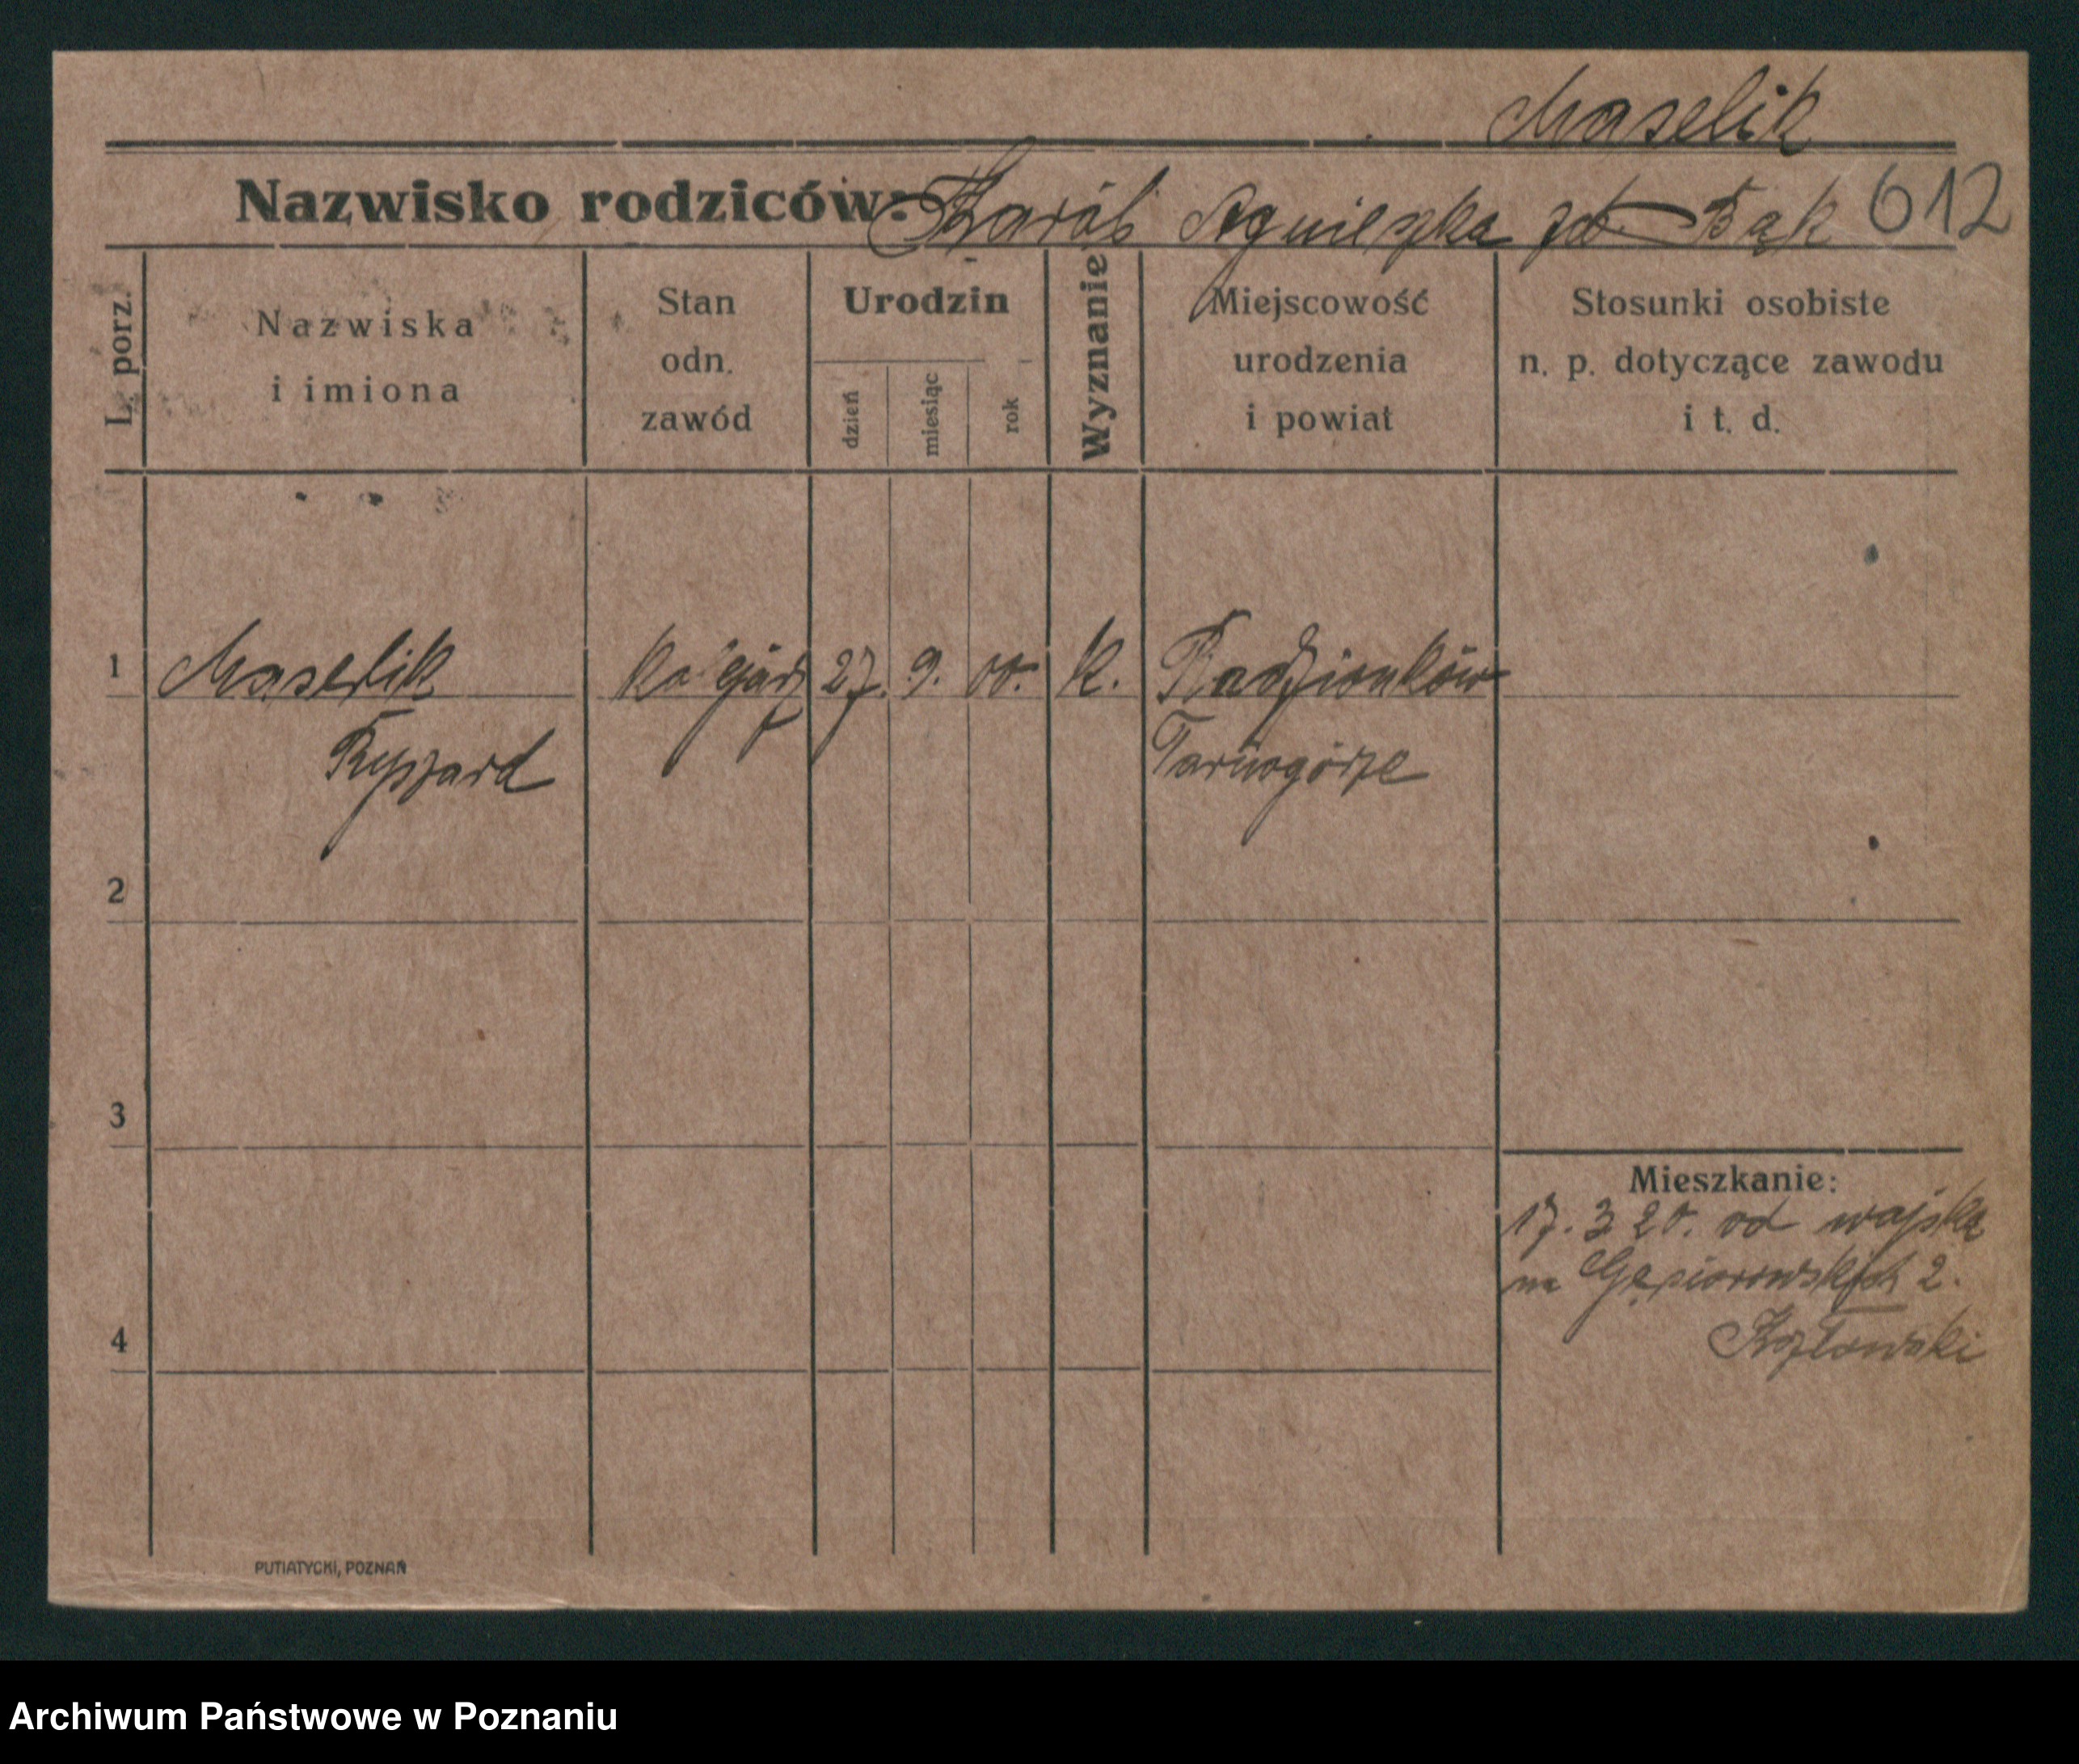 Maselik
Nazwisko rodziców: Karól Agnieszka zd. Bąk 612
L. porz.
Nazwiska
i imiona
Stan
odn.
zawód
Urodzin
dzień
miesiąc
rok
Wyznanie
Miejscowość
urodzenia
i powiat
Stosunki osobiste
n. p. dotyczące zawodu
i t. d.
1 Maselik kolejarz 27. 9. 00. k. Radzionków
Ryszard Tarnogórze
2
3
Mieszkanie:
17. 3 20. od wojska
na Gąsiorowskich 2.
4
Kozłowski
PUTIATYCKI, POZNAŃ
Archiwum Państwowe w Poznaniu